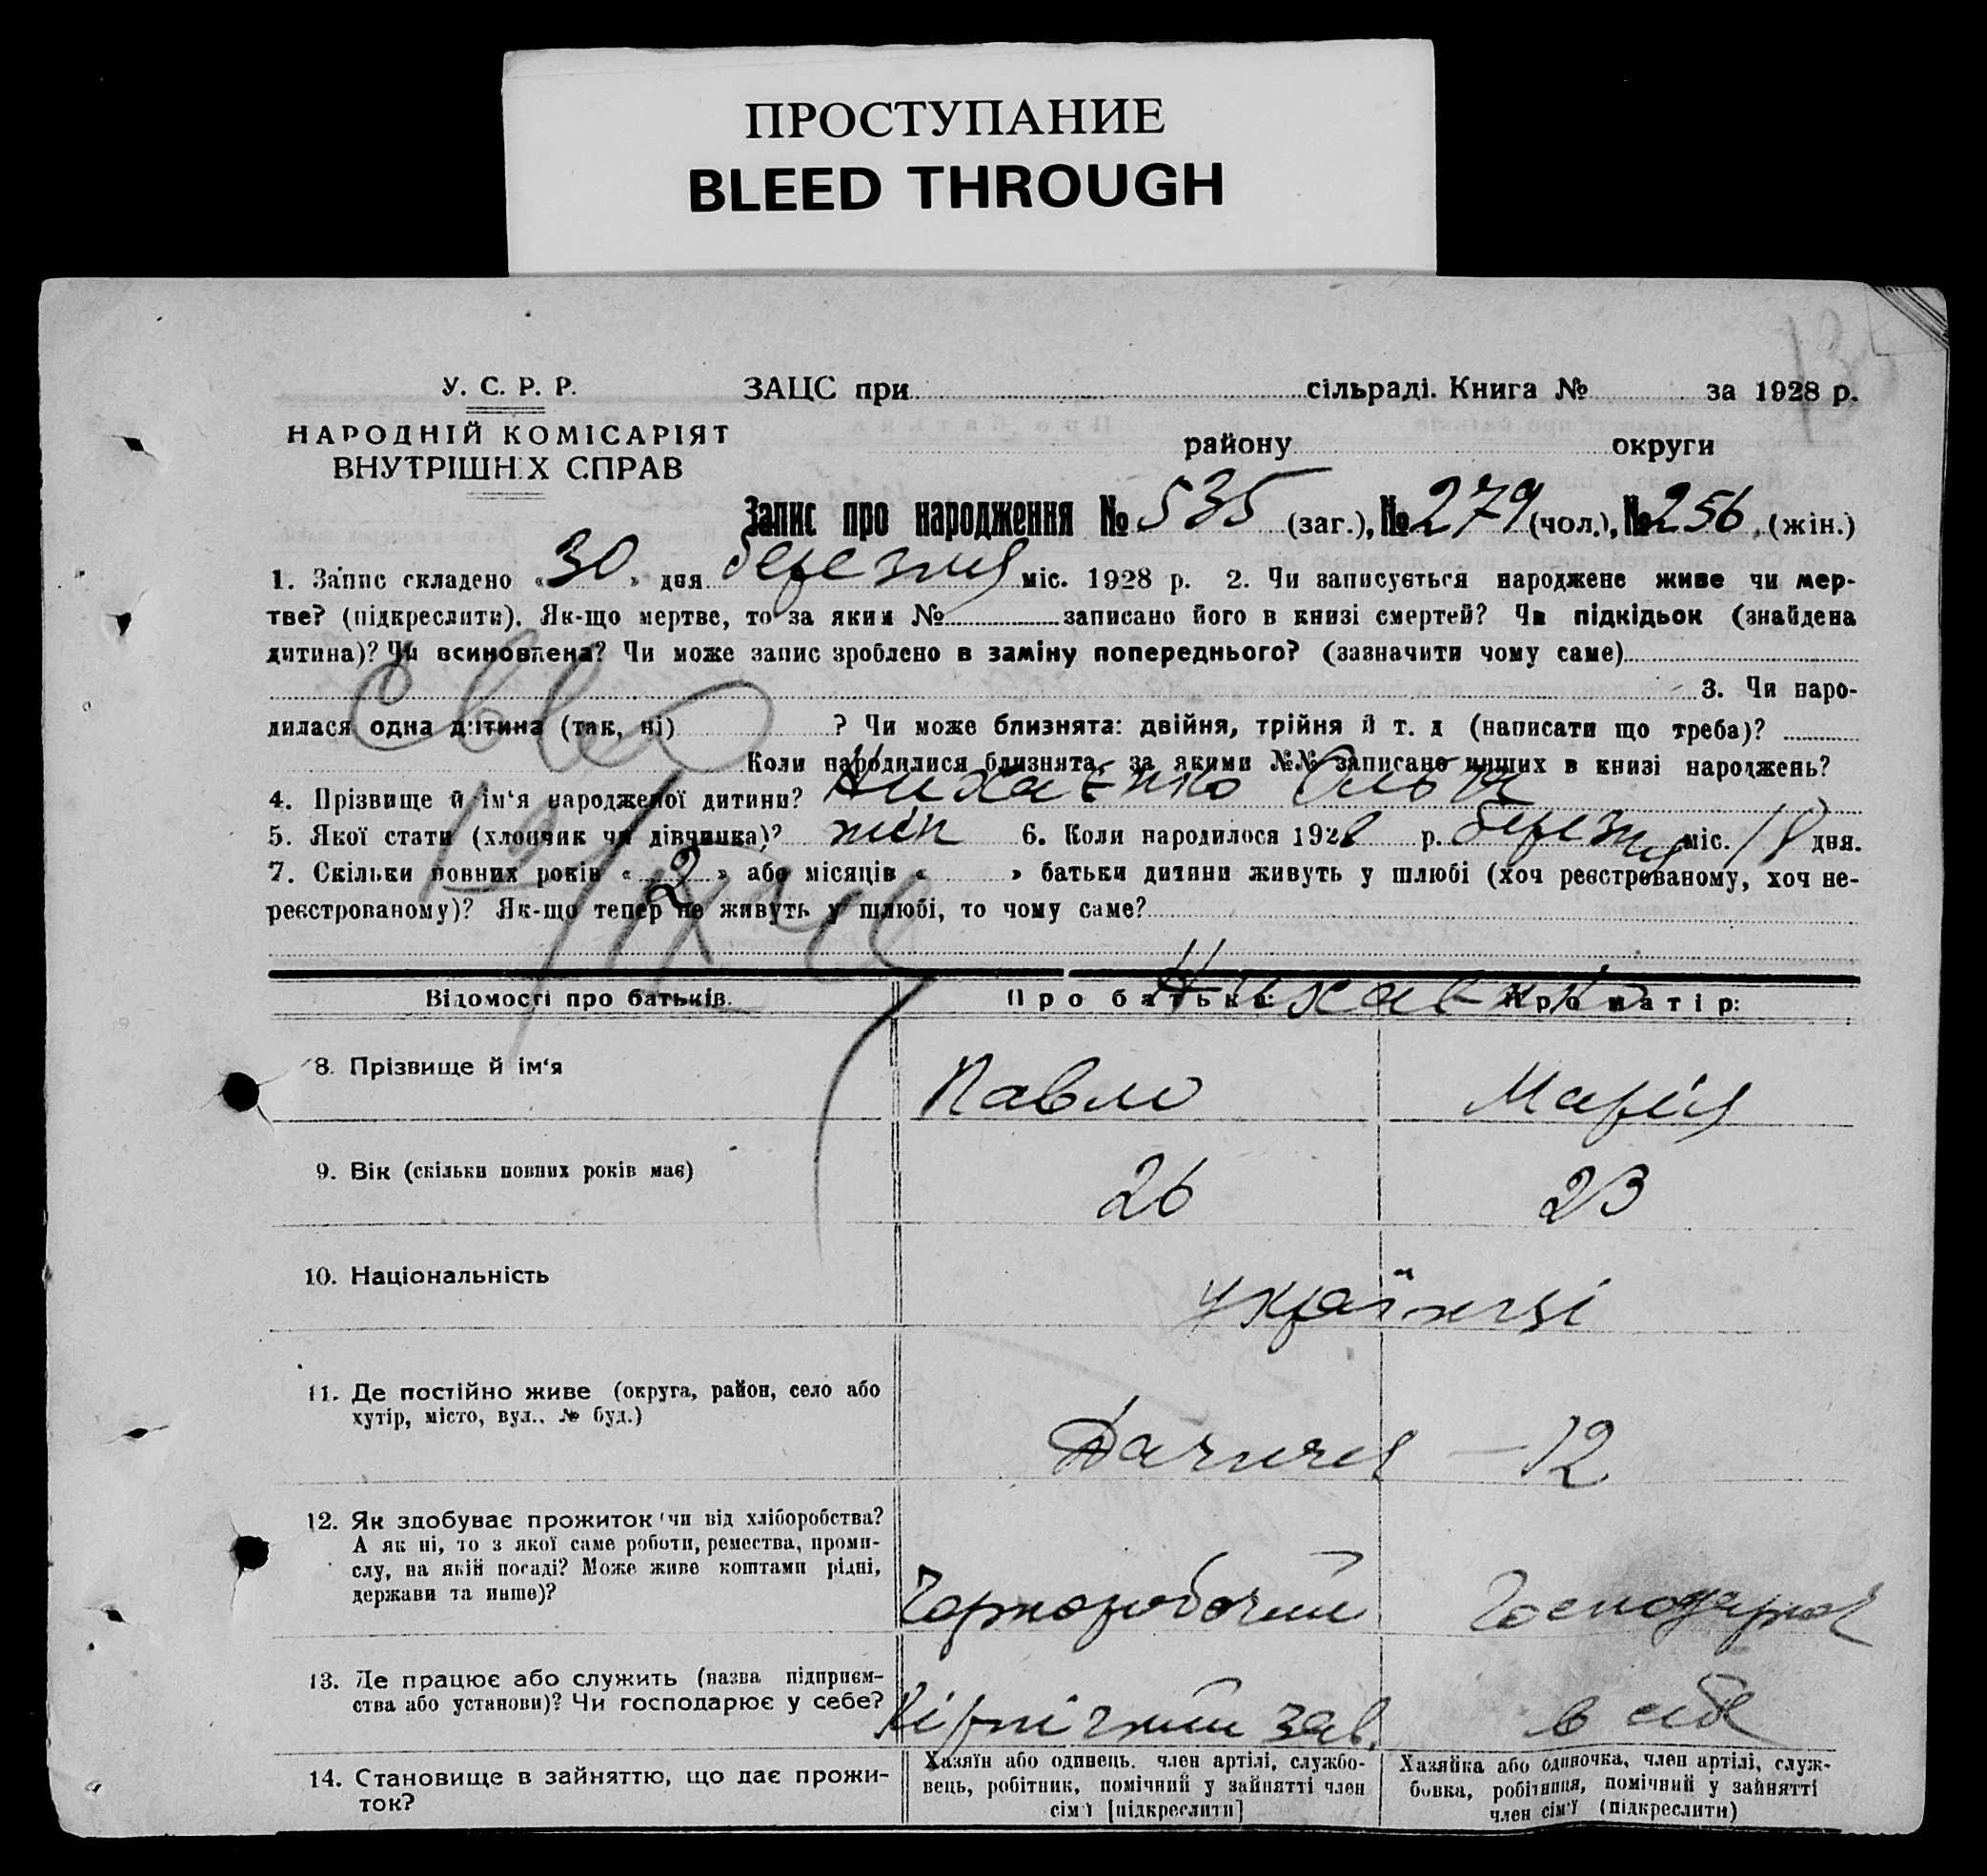 ПРОСТУПАНИЕ
BLEED THROUGH
У. С. Р. Р.
НАРОДНІЙ КОМІСАРІЯТ
ВНУТРІШНІХ СПРАВ
ЗАЦС при сільраді. Книга № за 1928 р.
району округи
Запис про народження № 535 (заг.), № 279 (чол.), № 256 (жін.)
1. Запис складено « 30 » дня березня міс. 1928 р. 2. Чи записується народжене живе чи мер-
тве? (підкреслити). Як-що мертве, то за яким № записано його в книзі смертей? Чи підкідьок (знайдена
дитина)? Чи всиновлена? Чи може запис зроблено в заміну попереднього? (зазначити чому саме)
3. Чи наро-
дилася одна дитина (так, ні) ? Чи може близнята: двійня, трійня й т. д (написати що треба)?
Коли народилися близнята, за якими №№ записано инших в книзі народжень?
4. Прізвище й ім'я народженої дитини?
5. Якої стати (хлопчик чи дівчинка)? жін 6. Коли народилося 1928 р. березня міс. 18 дня.
7. Скільки повних років « 2 » або місяців « » батьки дитини живуть у шлюбі (хоч реєстрованому, хоч не-
реєстрованому)? Як-що тепер не живуть у шлюбі, то чому саме?
Відомості про батьків. Про батька: Про матір:
8. Прізвище й ім'я Павло Марія
9. Вік (скільки повних років має) 26 23
10. Національність Українці
11. Де постійно живе (округа, район, село або
хутір, місто, вул., № буд.)
12
12. Як здобуває прожиток (чи від хліборобства?
А як ні, то з якої саме роботи, ремества, проми-
слу, на якій посаді? Може живе коштами рідні,
держави та инше)?
Чорноробочий Господарка
13. Де працює або служить (назва підприєм-
ства або установи)? Чи господарює у себе?
Кірпічний зав. в себе
14. Становище в зайняттю, що дає прожи-
ток?
Хазяїн або одинець, член артілі, службо-
вець, робітник, помічний у зайнятті член
сім'ї [підкреслити]
Хазяйка або одиночка, член артілі, служ-
бовка, робітниця, помічний у зайнятті
член сім'ї (підкреслити)